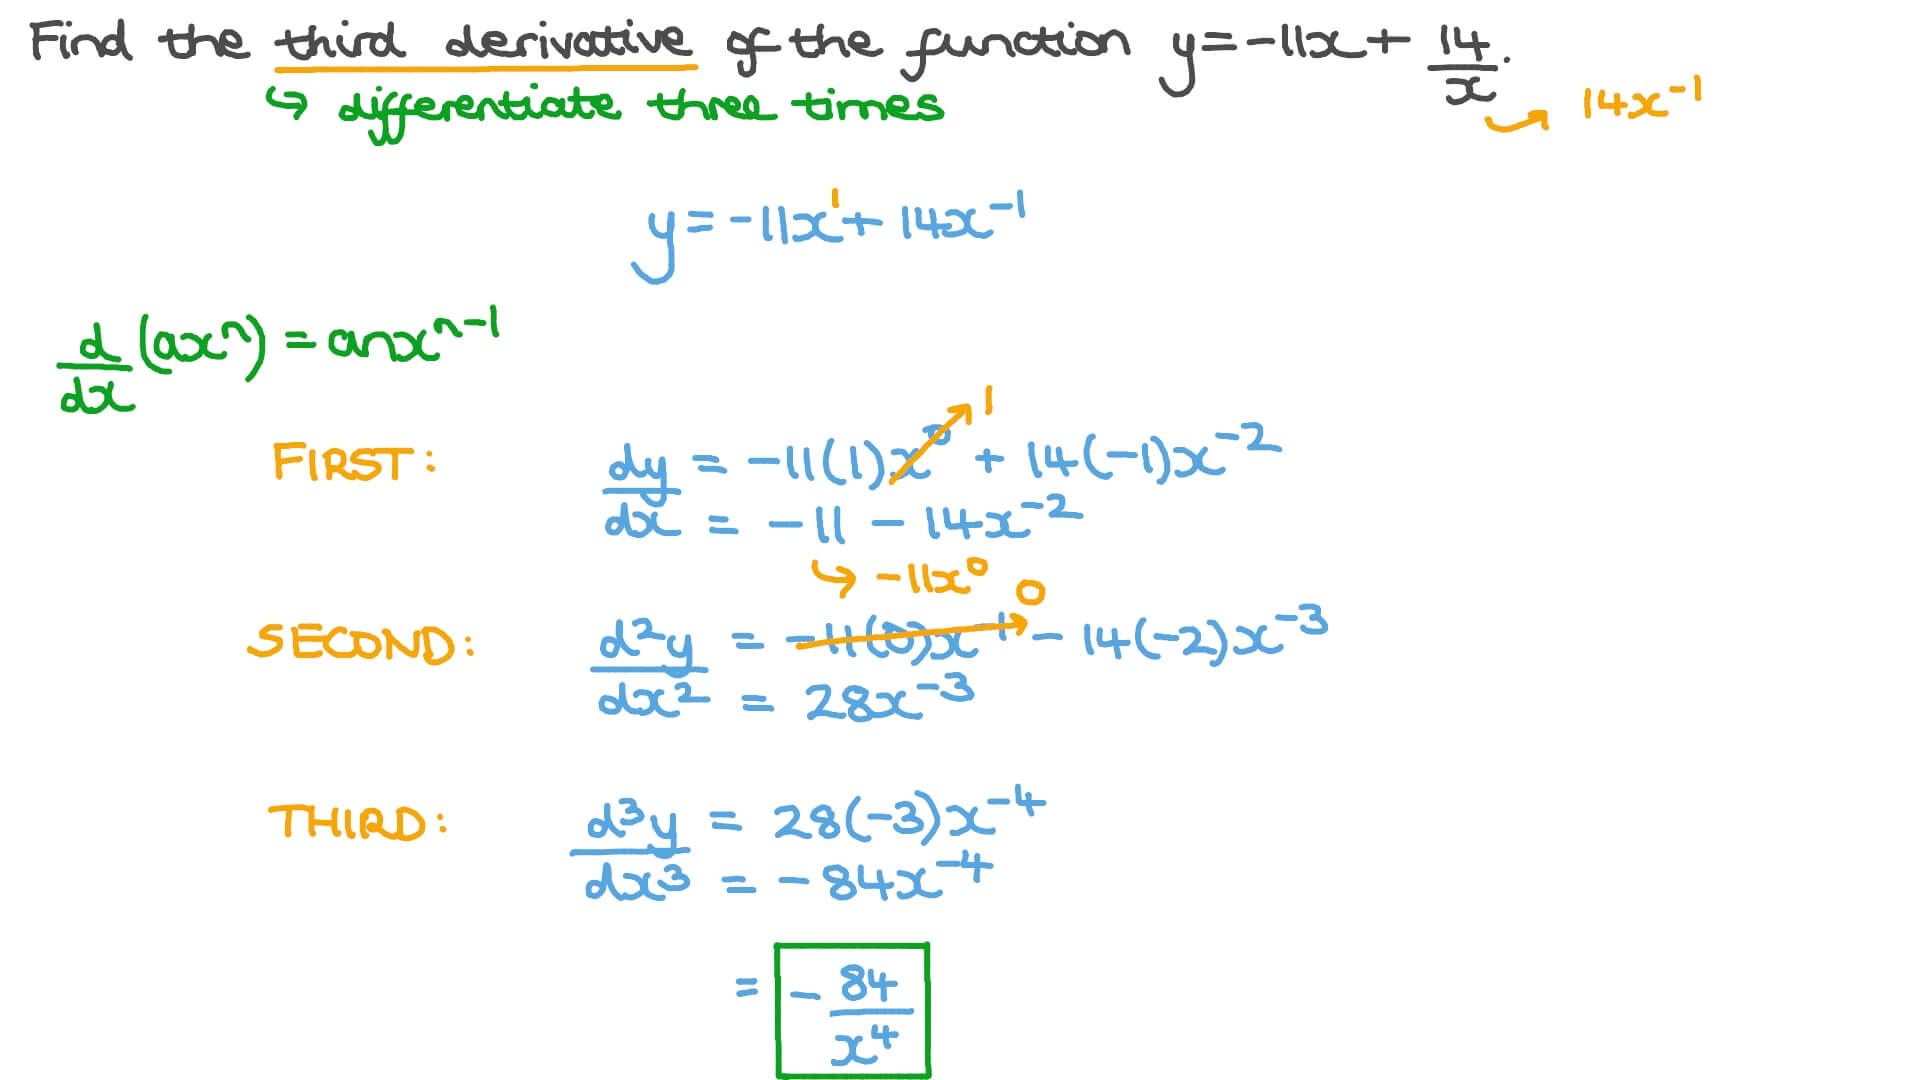 Find the third derivative of the function y = -11x + 14/x.
↪ differentiate three times → 14x⁻¹
y = -11x¹ + 14x⁻¹
d/dx (axⁿ) = anxⁿ⁻¹
1
FIRST: dy/dx = -11(1)x⁰ + 14(-1)x⁻²
= -11 - 14x⁻²
↪ -11x⁰ 0
SECOND: d²y/dx² = -11(0)x⁻¹ - 14(-2)x⁻³
= 28x⁻³
THIRD: d³y/dx³ = 28(-3)x⁻⁴
= -84x⁻⁴
= -84/x⁴